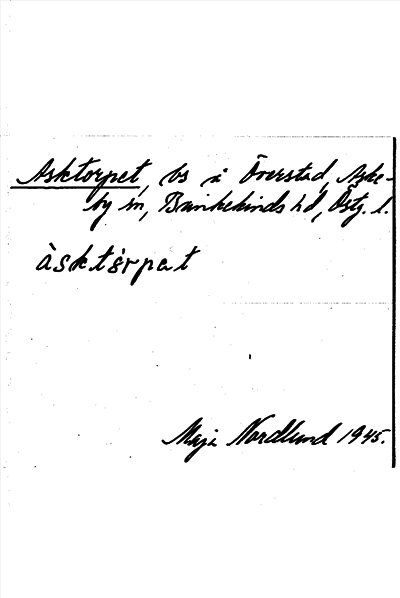 Asktorpet, bs å Överstad, Aske-
by sn, Bankekinds hd, Östg. l.
àsktòrpat
Maja Nordlund 1945.